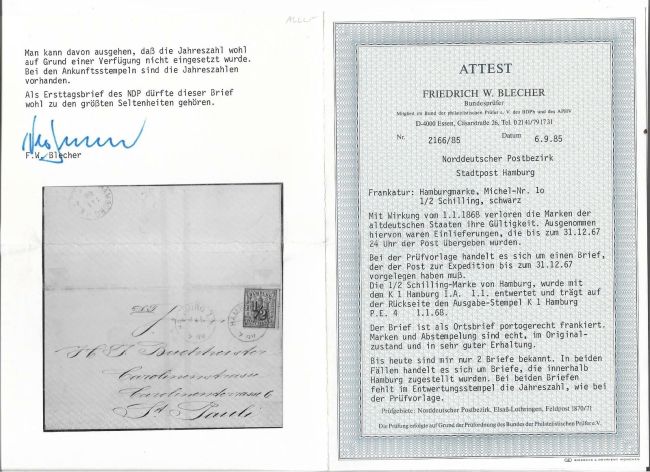 Man kann davon ausgehen, daß die Jahreszahl wohl
auf Grund einer Verfügung nicht eingesetzt wurde.
Bei den Ankunftsstempeln sind die Jahreszahlen
vorhanden.
Als Ersttagsbrief des NDP dürfte dieser Brief
wohl zu den größten Seltenheiten gehören.
F.W. Blecher
HAMBURG
Carolinenstrasse
Carolinenstrasse 6
St Pauli
ATTEST
FRIEDRICH W. BLECHER
Bundesprüfer
Mitglied im Bund der philatelistischen Prüfer e. V. des BDPh und des APHV
D-4000 Essen, Cäsarstraße 26, Tel. 02 41/79 17 31
Nr. 2166/85 Datum 6.9.85
Norddeutscher Postbezirk
Stadtpost Hamburg
Frankatur: Hamburgmarke, Michel-Nr. 1o
1/2 Schilling, schwarz
Mit Wirkung vom 1.1.1868 verloren die Marken der
altdeutschen Staaten ihre Gültigkeit. Ausgenommen
hiervon waren Einlieferungen, die bis zum 31.12.67
24 Uhr der Post übergeben wurden.
Bei der Prüfvorlage handelt es sich um einen Brief,
der der Post zur Expedition bis zum 31.12.67
vorgelegen haben muß.
Die 1/2 Schilling-Marke von Hamburg, wurde mit
dem K 1 Hamburg I.A. 1.1. entwertet und trägt auf
der Rückseite den Ausgabe-Stempel K 1 Hamburg
P.E. 4 1.1.68.
Der Brief ist als Ortsbrief portogerecht frankiert.
Marken und Abstempelung sind echt, im Original-
zustand und in sehr guter Erhaltung.
Bis heute sind mir nur 2 Briefe bekannt. In beiden
Fällen handelt es sich um Briefe, die innerhalb
Hamburg zugestellt wurden. Bei beiden Briefen
fehlt im Entwertungsstempel die Jahreszahl, wie bei
der Prüfvorlage.
Prüfgebiete: Norddeutscher Postbezirk, Elsaß-Lothringen, Feldpost 1870/71
Die Prüfung erfolgte auf Grund der Prüfordnung des Bundes der Philatelistischen Prüfer e.V.